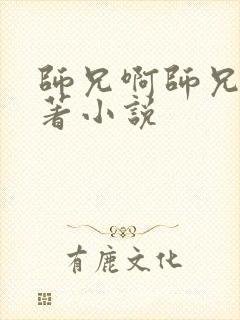 師兄啊師兄
著小説
有鹿文化